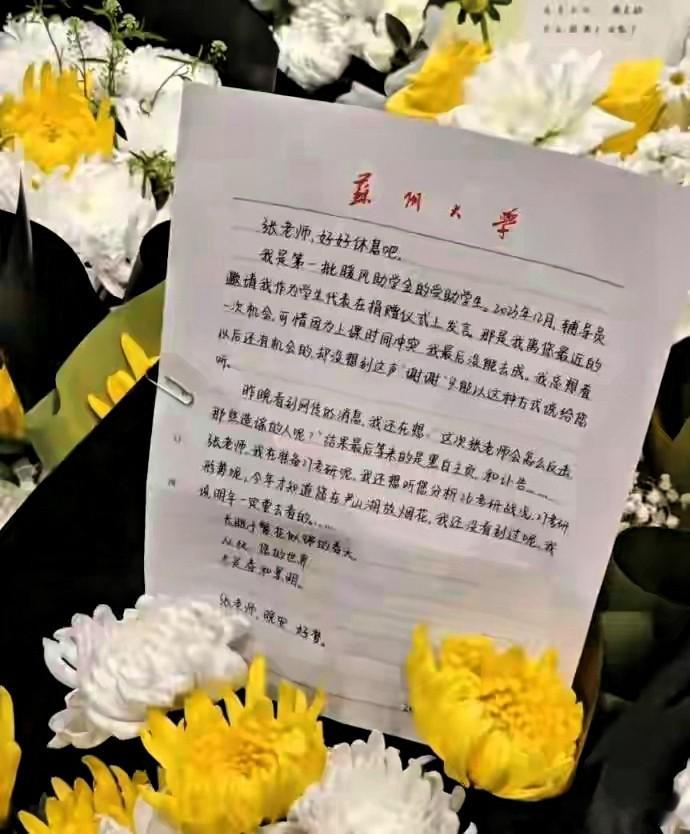 蘇州大學
张老师，好好休息吧。
我是第一批暖风助学金的受助学生。2025年12月，辅导员
邀请我作为学生代表在捐赠仪式上发言。那是我离您最近的
一次机会，可惜因为上课时间冲突，我最后没能去成。我总想着
以后还有机会的，却没想到这声“谢谢”只能以这种方式说给您
听。
昨晚看到网传的消息，我还在想：“这次张老师会怎么反击
那些造谣的人呢？”结果最后等来的是黑白主页，和讣告……
张老师，我在准备27考研呢。我还想听您分析26考研战况，27考研
形势呢。今年才知道您在尹山湖放烟花，我还没看到过呢，我
说明年一定要去看的……
长眠于繁花似锦的春天。
从此，您的世界
春和景明。
张老师，晚安，好梦。